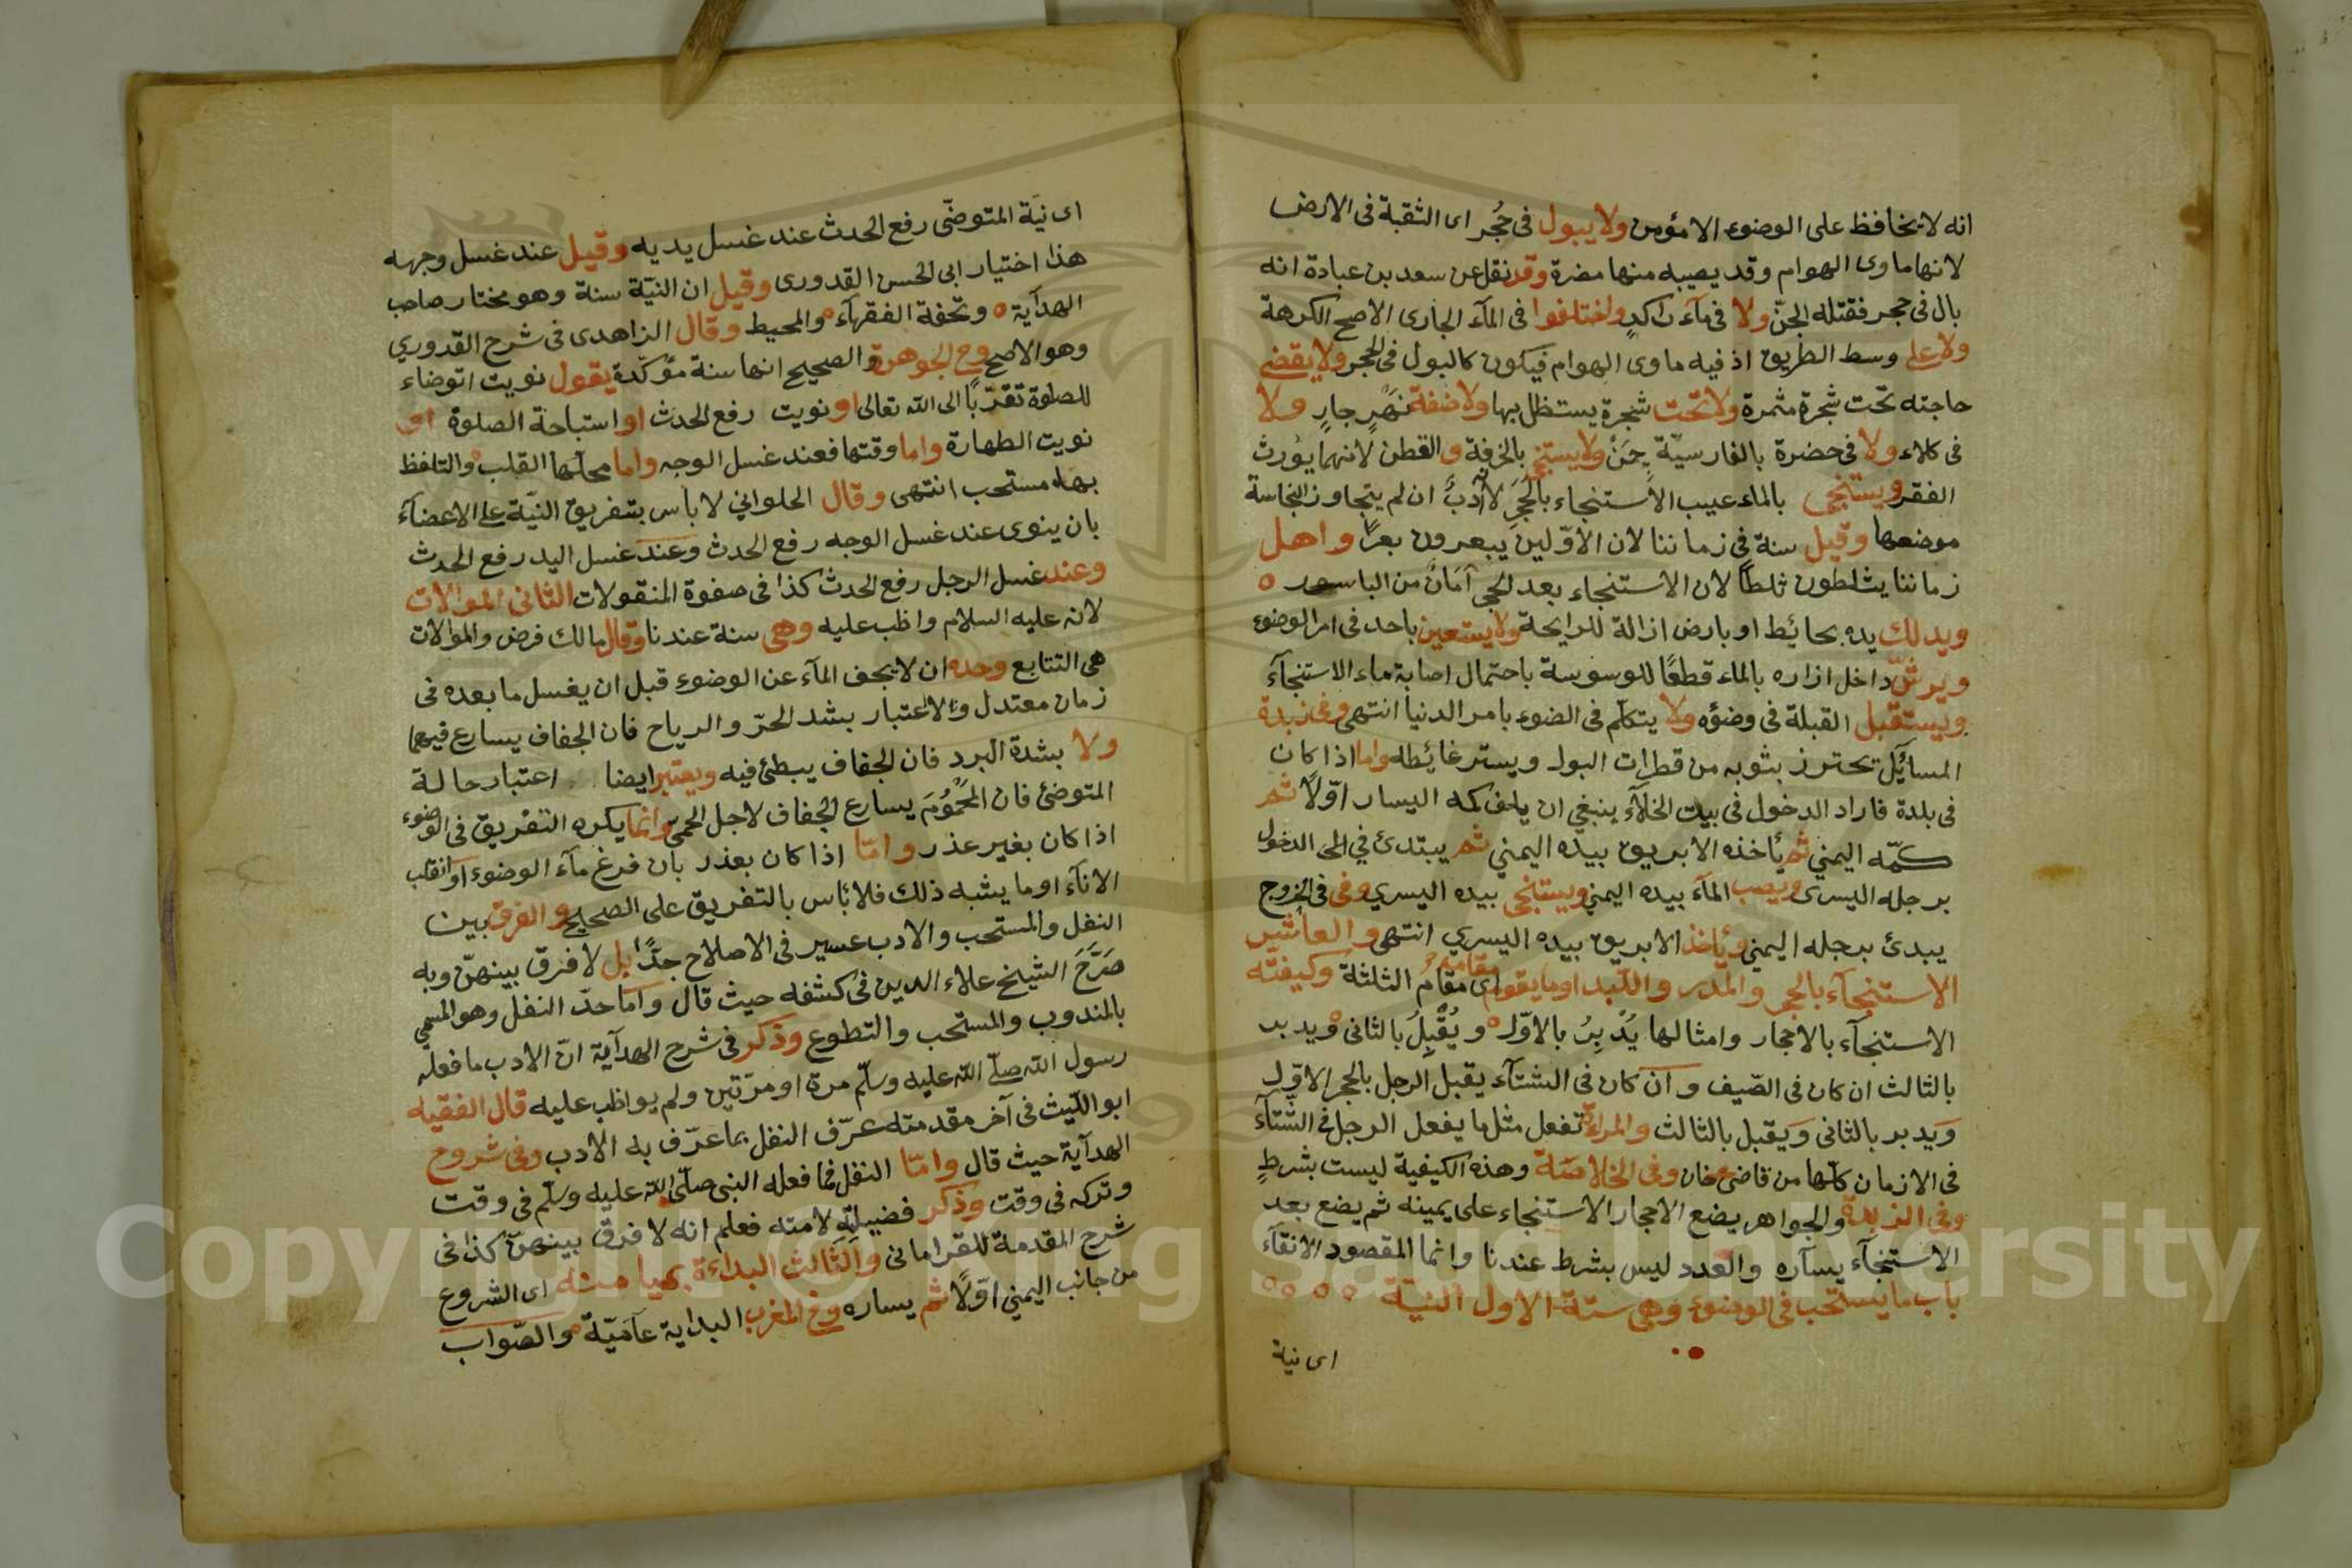 انه لا يخافظ على الوضوء الا مؤمن ولا يبول فى جُحر اى الثقبة فى الارض
لانها ماوى الهوام وقد يصيبه منها مضرة وقد نقل عن سعد بن عبادة انه
بال فى حجر فقتله الجنّ ولا فى مآء راكدٍ واختلفوا فى المآء الجارى الاصح الكرهة
ولا على وسط الطريق اذ فيه ماوى الهوام فيكون كالبول فى الحجر ولا يقضى
حاجته تحت شجرة مثمرة ولا تحت شجرة يستظل بها ولا ضفة نهرٍ جارٍ ولا
فى كلاء ولا فى حضرة بالفارسيّة چمَنْ ولا يستنجى بالخرقة والقطن لانهما يؤرث
الفقر ويستنجى بالماء عيب الاستنجاء بالحجر لانه ادبٌ ان لم يتجاوز النجاسة
موضعها وقيل سنة فى زماننا لان الاوّلين يبعرون بعرًا واهل
زماننا يثلطون ثلطًا لان الاستنجاء بعد الحجر آمَانٌ من الباسور
ويدلك يده بحائيط او بارض ازالة للرايحة ولا يستعين باحد فى امر الوضوء
ويرشّ داخل ازاره بالماء قطعًا للوسوسة باحتمال اصابة ماء الاستنجآء
ويستقبل القبلة فى وضؤه ولا يتكلّم فى الضوء بامر الدنيا انتهى وفى زبدة
المسآئل تحترز بثوبه من قطرات البول ويستر غائيطه واما اذا كان
فى بلدة فاراد الدخول فى بيت الخلآء ينبغى ان يلف كمه اليسار اوّلًا ثم
كمّه اليمني ثم يأخذه الابريق بيده اليمني ثم يبتدئ في الدخول
برجله اليسرى ويصب المآء بيده اليمني ويستنجى بيده اليسري وفى الخروج
يبدئ برجله اليمني ويأخذ الابريق بيده اليسري انتهى والعاشر
الاستنجآء بالحجر والمدر واللبد او ما يقوم مقامه اى مقامُ الثلثة وكيفيّته
الاستنجآء بالاحجار وامثالها يُدْبِرُ بالاوّل ويُقْبِلُ بالثانى ويدبر
بالثالث ان كان فى الصّيف وان كان فى الشتآء يقبل الرجل بالحجر الاوّل
وَيدبر بالثانى وَيقبل بالثالث والمراة تفعل مثل ما يفعل الرجل فى الشتآء
فى الازمان كلّها من قاضى خان وفى الخلاصة وهذه الكيفية ليست بشرطٍ
وفى الزبدة والجواهر يضع الاحجار الاستنجاء على يمينه ثم يضع بعد
الاستنجآء يسآره والعدد ليس بشرط عندنا وانما المقصود الانقآء
باب ما يستحب فى الوضوء وهى ستة الاول النيّة
اى نية
اى نيّة المتوضّى رفع الحدث عند غسل يديه وقيل عند غسل وجهه
هذا اختيار ابى الحسن القدورى وقيل ان النيّة سنة وهو مختار صاحب
الهدآية وتحفة الفقهآء والمحيط وقال الزاهدى فى شرح القدوري
وهو الاصح وفى الجوهرة والصحيح انها سنة مؤكّدة يقول نويت اتوضاء
للصلوة تقرّبًا الى الله تعالى او نويت رفع الحدث او استباحة الصلوة او
نويت الطهارة واما وقتها فعند غسل الوجه واما محلّها القلب والتلفظ
بهاء مستحب انتهى وقال الحلواني لا بأس بتفريق النيّة على الاعضآء
بان ينوى عند غسل الوجه رفع الحدث وعند غسل اليد رفع الحدث
وعند غسل الرجل رفع الحدث كذا فى صفوة المنقولات الثانى الموالات
لانه عليه السلام واظب عليه وهى سنة عندنا وقال مالك فرض والموالات
هى التتابع وحده ان لا يجف المآء عن الوضوء قبل ان يغسل ما بعده فى
زمان معتدل والاعتبار بشد الحرّ والرياح فان الجفاف يسارع فيهما
ولا بشدة البرد فان الجفاف يبطئ فيه ويعتبر ايضا اعتبار حالة
المتوضئ فان المحْمُومَ يسارع الجفاف لاجل الحمى وانما يكره التفريق فى الوضوء
اذا كان بغير عذر وامّا اذا كان بعذر بان فرغ مآء الوضوء او انقلب
الانآء او ما يشبه ذلك فلا بأس بالتفريق على الصحيح والفرق بين
النفل والمستحب والادب عسير فى الاصلاح جدًّا بل لا فرق بينهنّ وبه
صَرَّحَ الشيخ علاء الدين فى كشفه حيث قال واما حدّ النفل وهو المسمي
بالمندوب والمستحب والتطوع وذكر فى شرح الهدآية انّ الادب ما فعله
رسول الله صلّى الله عليه وسلّم مرة او مرّتين ولم يواظب عليه قال الفقيه
ابو اللّيث فى آخر مقدمته عرّف النفل بما عرّف به الادب وفى شروح
الهدآية حيث قال وامّا النفل فما فعله النبى صلّى الله عليه وسلّم فى وقت
وتركه فى وقت وذكر فضيلته لامته فعلم انه لا فرق بينهنّ كذا فى
شرح المقدمة للقرامانى والثّالث البداءة بميامنه اى الشروع
من جانب اليمني اوّلًا ثم يساره وفى المغرب البداية عآميّة والصّواب
Copyright © King Saud University